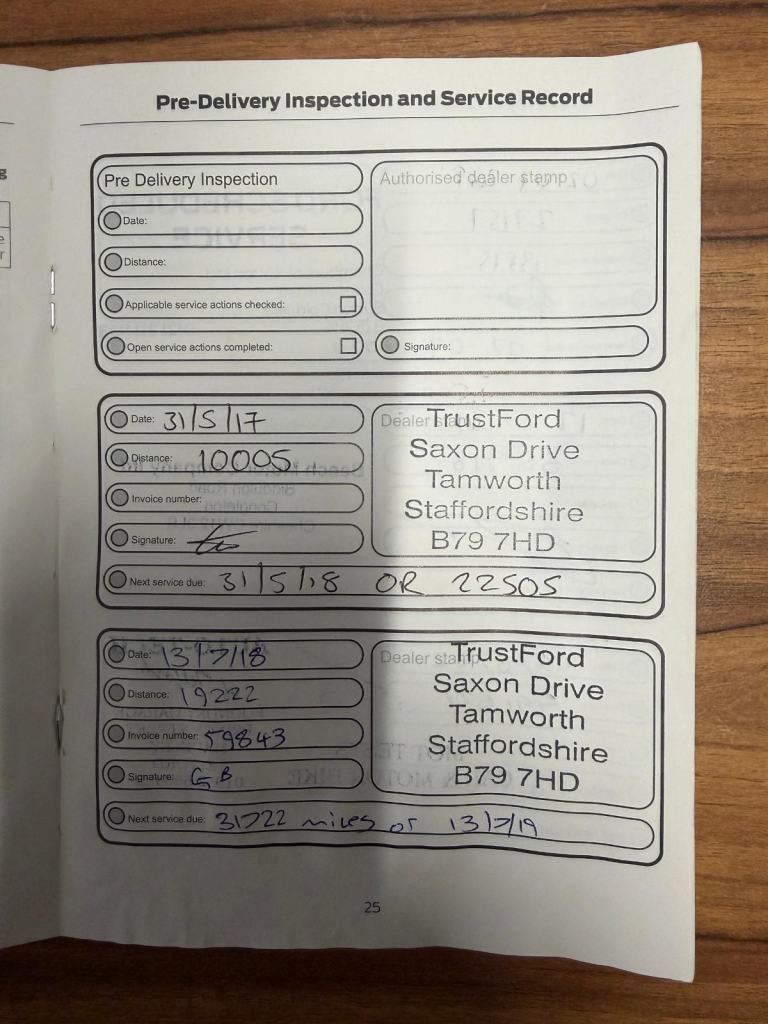 Pre-Delivery Inspection and Service Record
Pre Delivery Inspection
Authorised dealer stamp
Date:
Distance:
Applicable service actions checked:
Open service actions completed:
Signature:
Date: 31/5/17
Distance: 10005
Invoice number:
Signature:
Dealer stamp
TrustFord
Saxon Drive
Tamworth
Staffordshire
B79 7HD
Next service due: 31/5/18 OR 22505
Date: 13/7/18
Distance: 19222
Invoice number: 59843
Signature: GB
Dealer stamp
TrustFord
Saxon Drive
Tamworth
Staffordshire
B79 7HD
Next service due: 31722 miles or 13/7/19
25